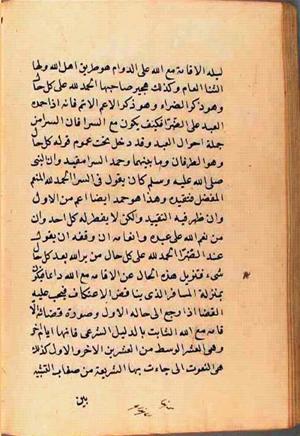 ليله الاقامة مع الله على الدوام هو طريق اهل الله ولها
الثنا العام وكذلك هجير صاحبها الحمد لله على كل حال
وهو ذكر الضراء وهو ذكر الاعم الاتم فانه اذا حمده
العبد على الضراء فكيف يكون مع السرا فان السرا من
جملة احوال العبد وقد دخل تحت عموم قوله كل حال
وهو الطرفان وما بينهما وحمد السرا مقيد وان النبى
صلى الله عليه وسلم كان يقول فى السرا الحمد لله المنعم
المفضل فتقيده وهذا هو حمد ايضا اعم من الاول
وان ظهر فيه التقييد ولكن لا يفطن له كل احد وان
من نعم الله على عبده وانعامه ان وفقه ان يقول
عند الضراء الحمد لله على كل حال من ير الله بعد كل
شىء فتزيل هذه الحال عن الاقامة مع الله دايما فيكون
بمنزلة المسافر الذى يناقض الاعتكاف فيجب عليه
القضا اذا رجع الى حاله الاول وصورة قضائه
مع الله الثابت بالدليل الشرعى فانها ايام اخر
وهى العشر الوسط من العشرين الاخر والاول كذلك
هى النعوت التى جاءت بها الشريعة من صفات التشبيه
بين